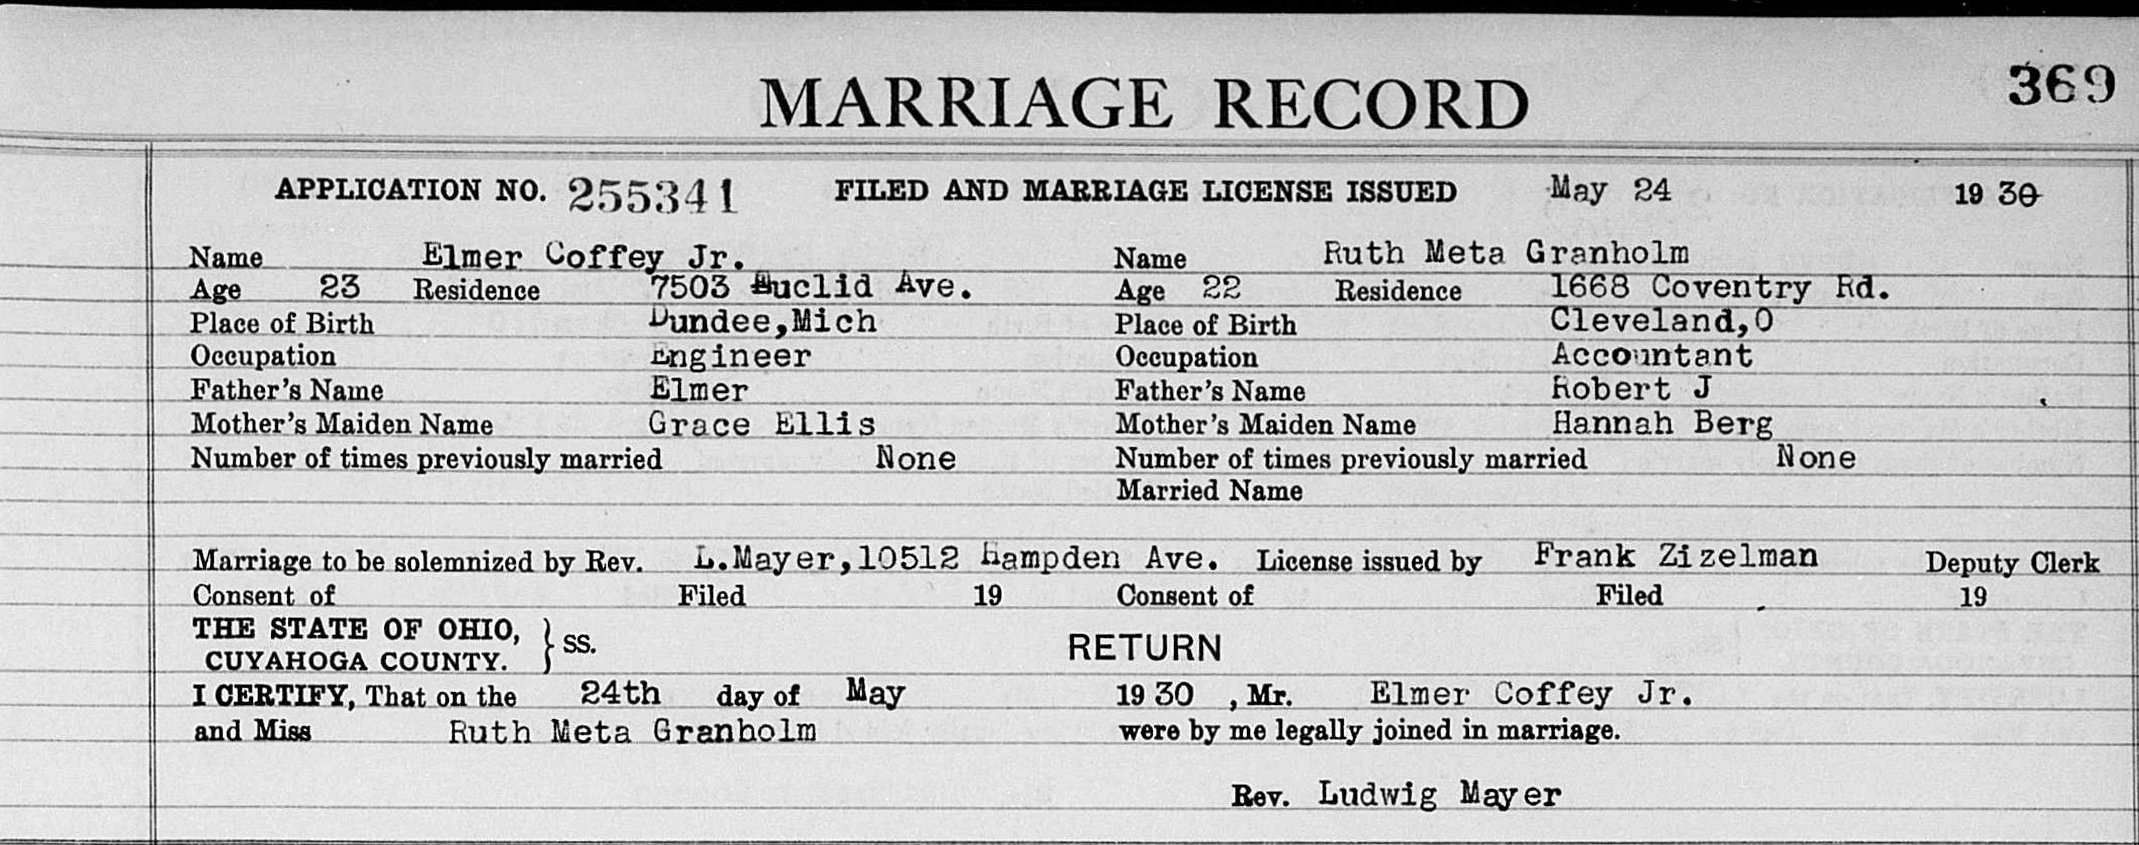 369
MARRIAGE RECORD
APPLICATION NO. 255341 FILED AND MARRIAGE LICENSE ISSUED May 24 19 30
Name Elmer Coffey Jr. Name Ruth Meta Granholm
Age 23 Residence 7503 Euclid Ave. Age 22 Residence 1668 Coventry Rd.
Place of Birth Dundee,Mich Place of Birth Cleveland,O
Occupation Engineer Occupation Accountant
Father's Name Elmer Father's Name Robert J
Mother's Maiden Name Grace Ellis Mother's Maiden Name Hannah Berg
Number of times previously married None Number of times previously married None
Married Name
Marriage to be solemnized by Rev. L.Mayer,10512 Hampden Ave. License issued by Frank Zizelman Deputy Clerk
Consent of Filed 19 Consent of Filed 19
THE STATE OF OHIO, } SS. RETURN
CUYAHOGA COUNTY.
I CERTIFY, That on the 24th day of May 19 30 , Mr. Elmer Coffey Jr.
and Miss Ruth Meta Granholm were by me legally joined in marriage.
Rev. Ludwig Mayer